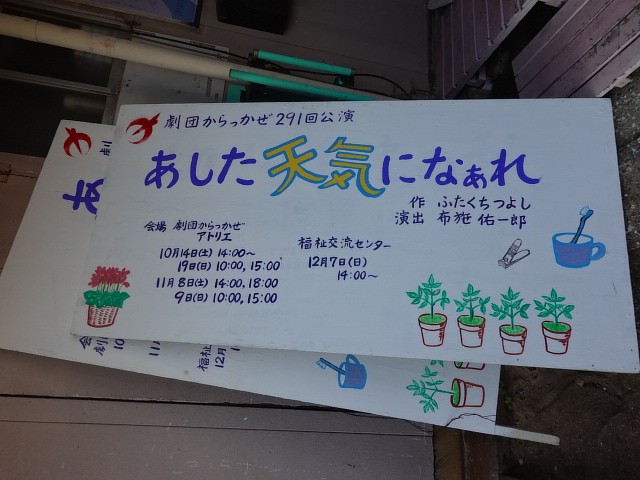 劇団からっかぜ291回公演
あした天気になぁれ
作 ふたくちつよし
演出 布施佑一郎
会場 劇団からっかぜ
アトリエ
10月14日(土) 14:00~
19日(日) 10:00, 15:00
11月8日(土) 14:00, 18:00
9日(日) 10:00, 15:00
福祉交流センター
12月7日(日)
14:00~
あ
劇
会
劇
10
11
福祉
12月